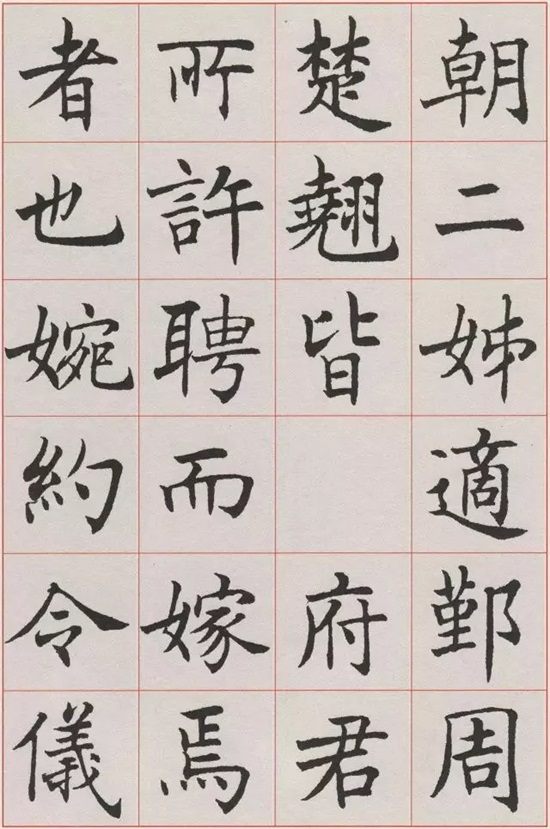 朝二姊適鄞周
楚翹皆 府君
所許聘而嫁焉
者也婉約令儀